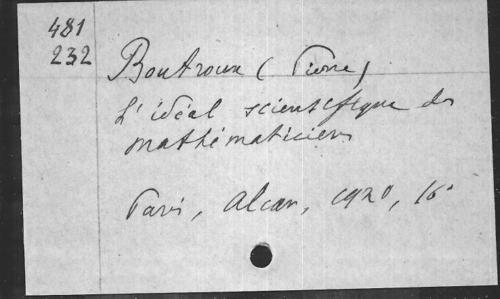 481
232
Boutroux (Pierre)
L'idéal scientifique des
mathématiciens
Paris, Alcan, 1920, 16°